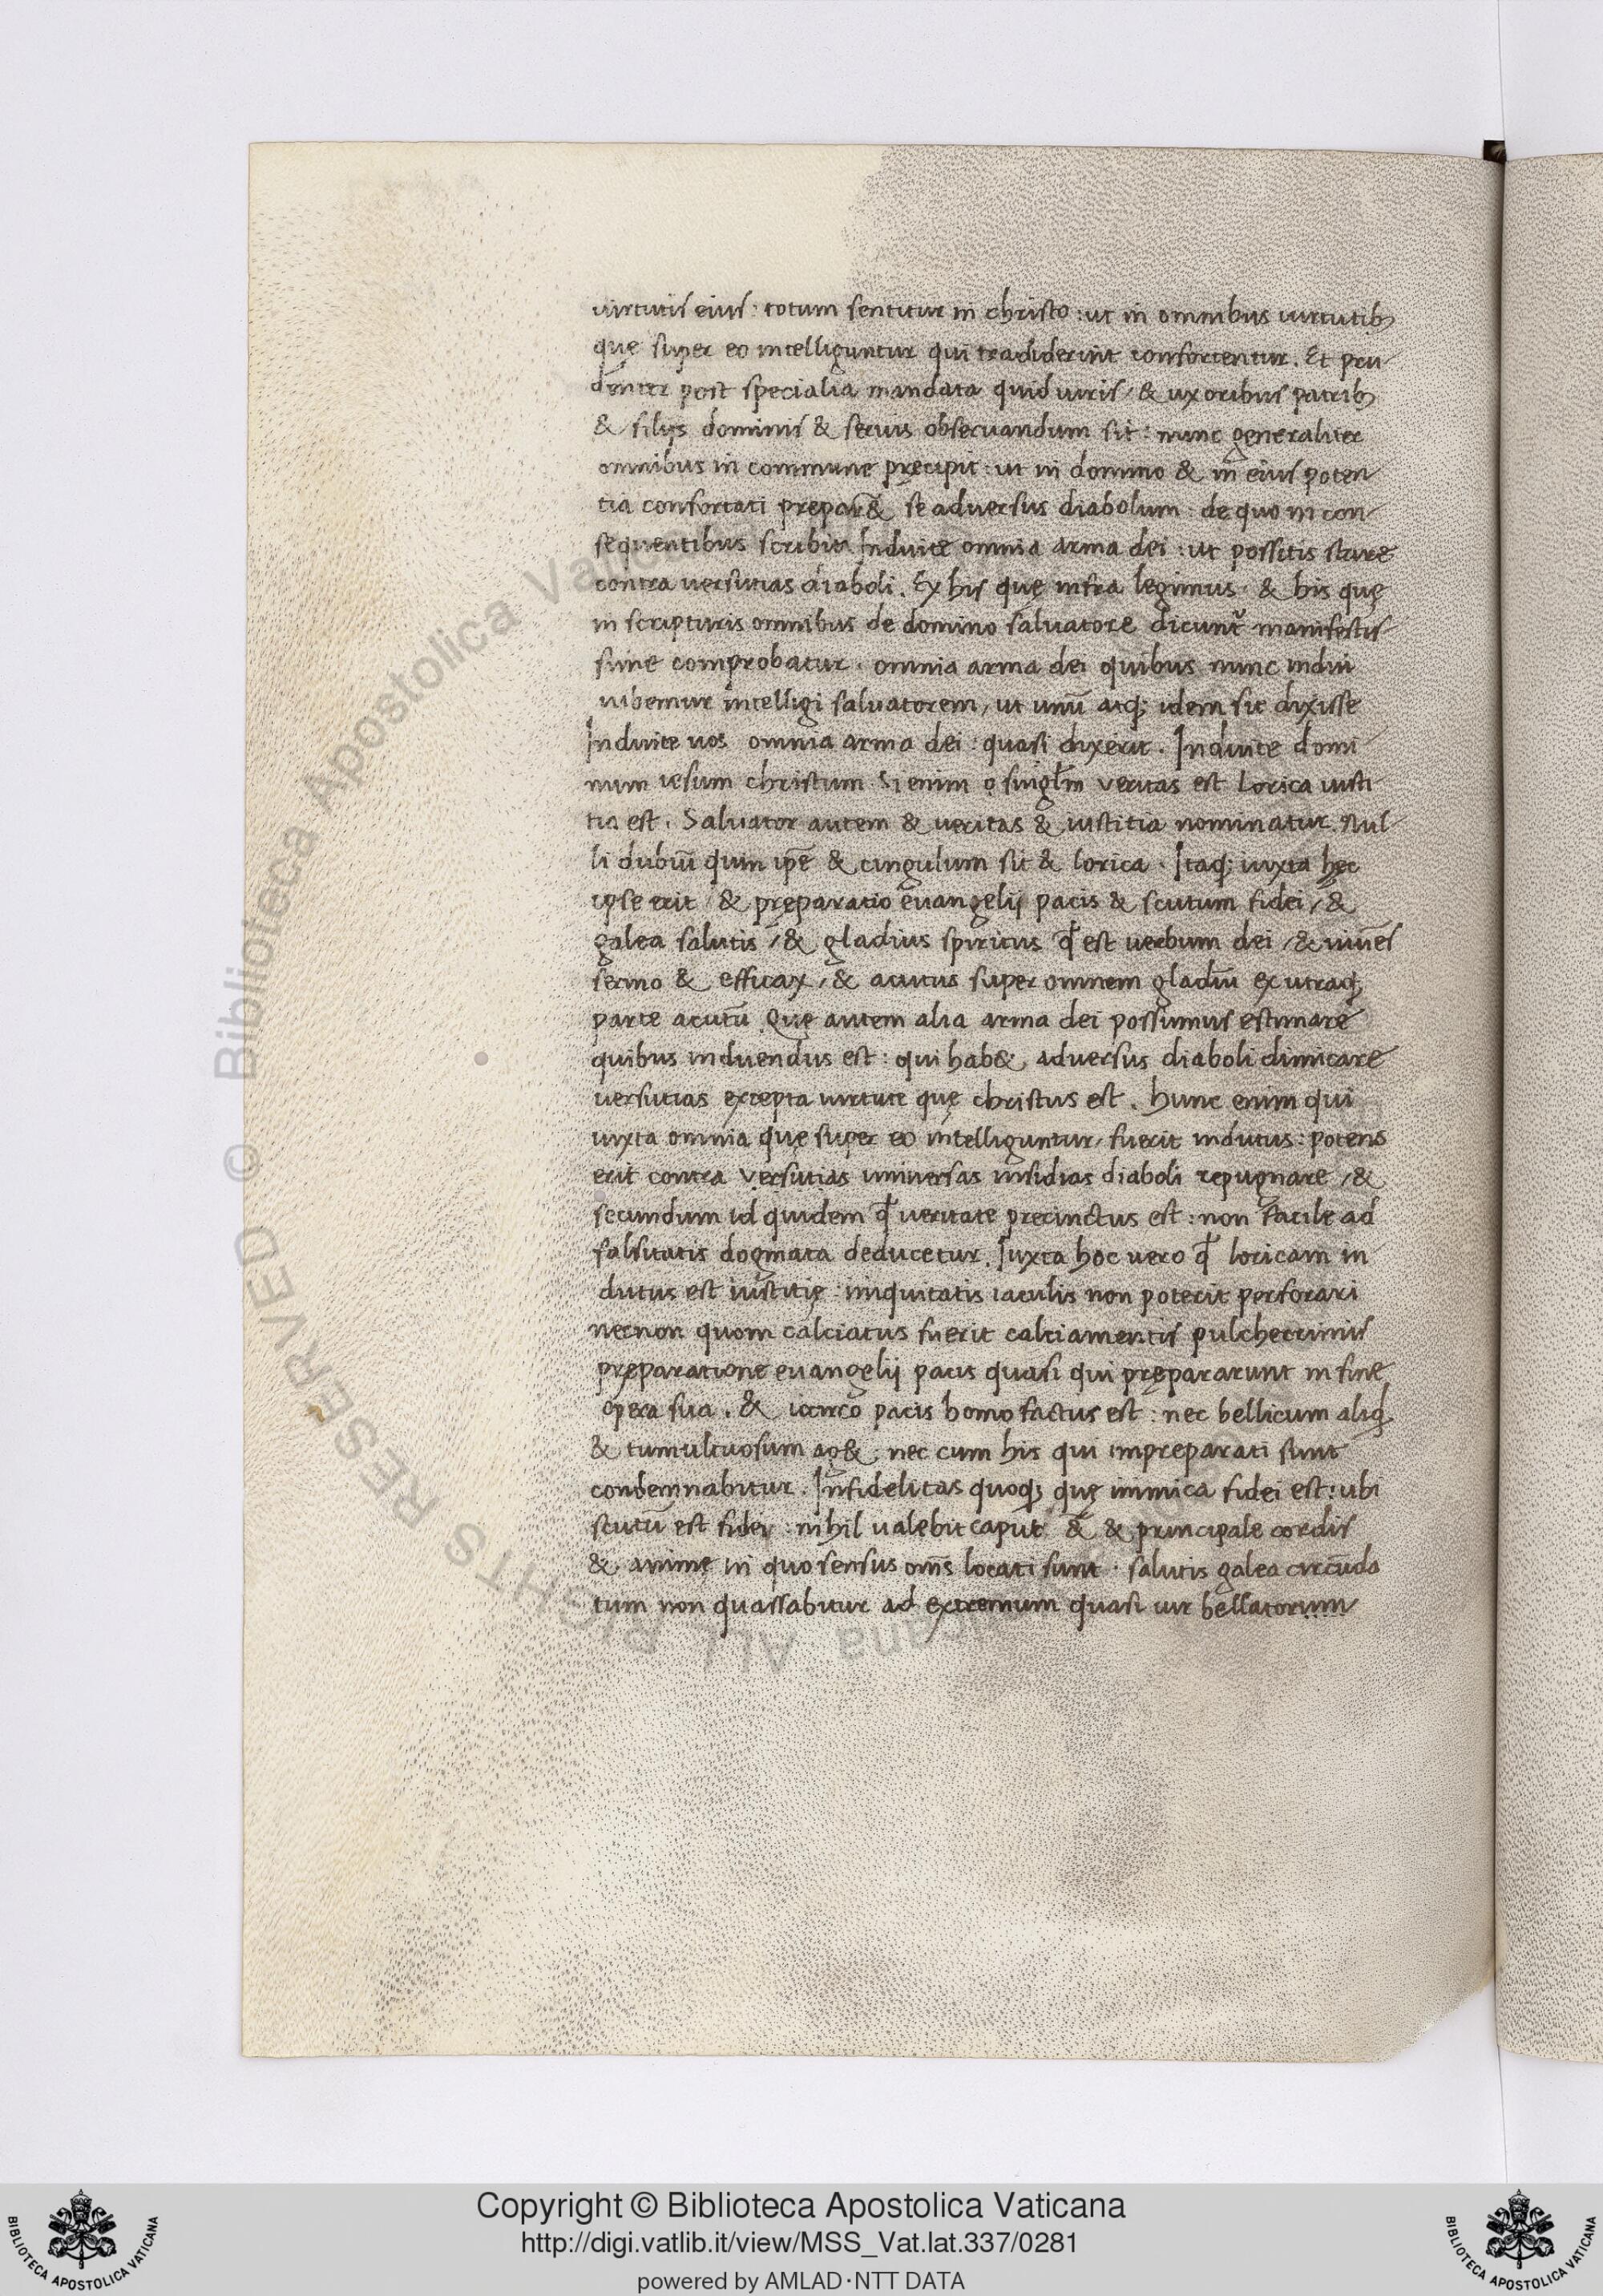 virtutis eius: totum sentitur in christo: ut in omnibus uirtutib;
quę super eo intelliguntur qui tradiderint confortentur. Et pru
denter post specialia mandata quid uiris / & uxoribus patrib;
& filijs dominis & seruis obseruandum sit: nunc generaliter
omnibus in commune pręcipit: ut in domino & in eius poten
tia confortati prepar& se aduersus diabolum: de quo in con
sequentibus scribit. Induite omnia arma dei: ut possitis stare
contra uersutias diaboli. Ex his quę infra legimus. & his quę
in scripturis omnibus de domino saluatore dicunt̃ manifestis
sime comprobatur. omnia arma dei quibus nunc indui
iubemur intelligi saluatorem, ut unū atq; idem sit dixisse
Induite uos omnia arma dei: quasi dixerit. Induite domi
num iesum christum. Si enim veritas est Lorica iusti
tia est. Saluator autem & ueritas & iustitia nominatur. Nul
li dubiū quin ip̄e & cingulum sit & lorica. Itaq; iuxta hęc
ipse erit / & pręparatio euangelij pacis & scutum fidei, &
galea salutis, & gladius spiritus q̄ est uerbum dei, & uiuēs
sermo & efficax, & acutus super omnem gladiū ex utraq;
parte acutū. Quę autem alia arma dei possumus estimare
quibus induendus est: qui hab& aduersus diaboli dimicare
uersutias excepta uirtute quę christus est. Hunc enim qui
iuxta omnia quę super eo intelliguntur, fuerit indutus: potens
erit contra versutias uniuersas insidias diaboli repugnare, &
secundum id quidem q̄ ueritate precinctus est: non facile ad
falsitatis dogmata deducetur. Iuxta hoc uero q̄ loricam in
dutus est iustitię: iniquitatis iaculis non poterit perforari
necnon quom calciatus fuerit calciamentis pulcherrimis
pręparatione euangelij pacis quasi qui prępararunt in fine
opera sua. & iccirco pacis homo factus est: nec bellicum aliq;
& tumultuosum ag& nec cum his qui impreparati sunt
condemnabitur. Infidelitas quoq; quę inimica fidei est: ubi
scutū est fidei: nihil ualebit caput & & principale cordis
& animę in quo sensus om̄s locati sunt. salutis galea circūda
tum non quassabitur ad extremum quasi uir bellatorum
Copyright © Biblioteca Apostolica Vaticana
http://digi.vatlib.it/view/MSS_Vat.lat.337/0281
powered by AMLAD·NTT DATA
BIBLIOTECA APOSTOLICA VATICANA
BIBLIOTECA APOSTOLICA VATICANA
© Biblioteca Apostolica Vaticana ALL RIGHTS RESERVED